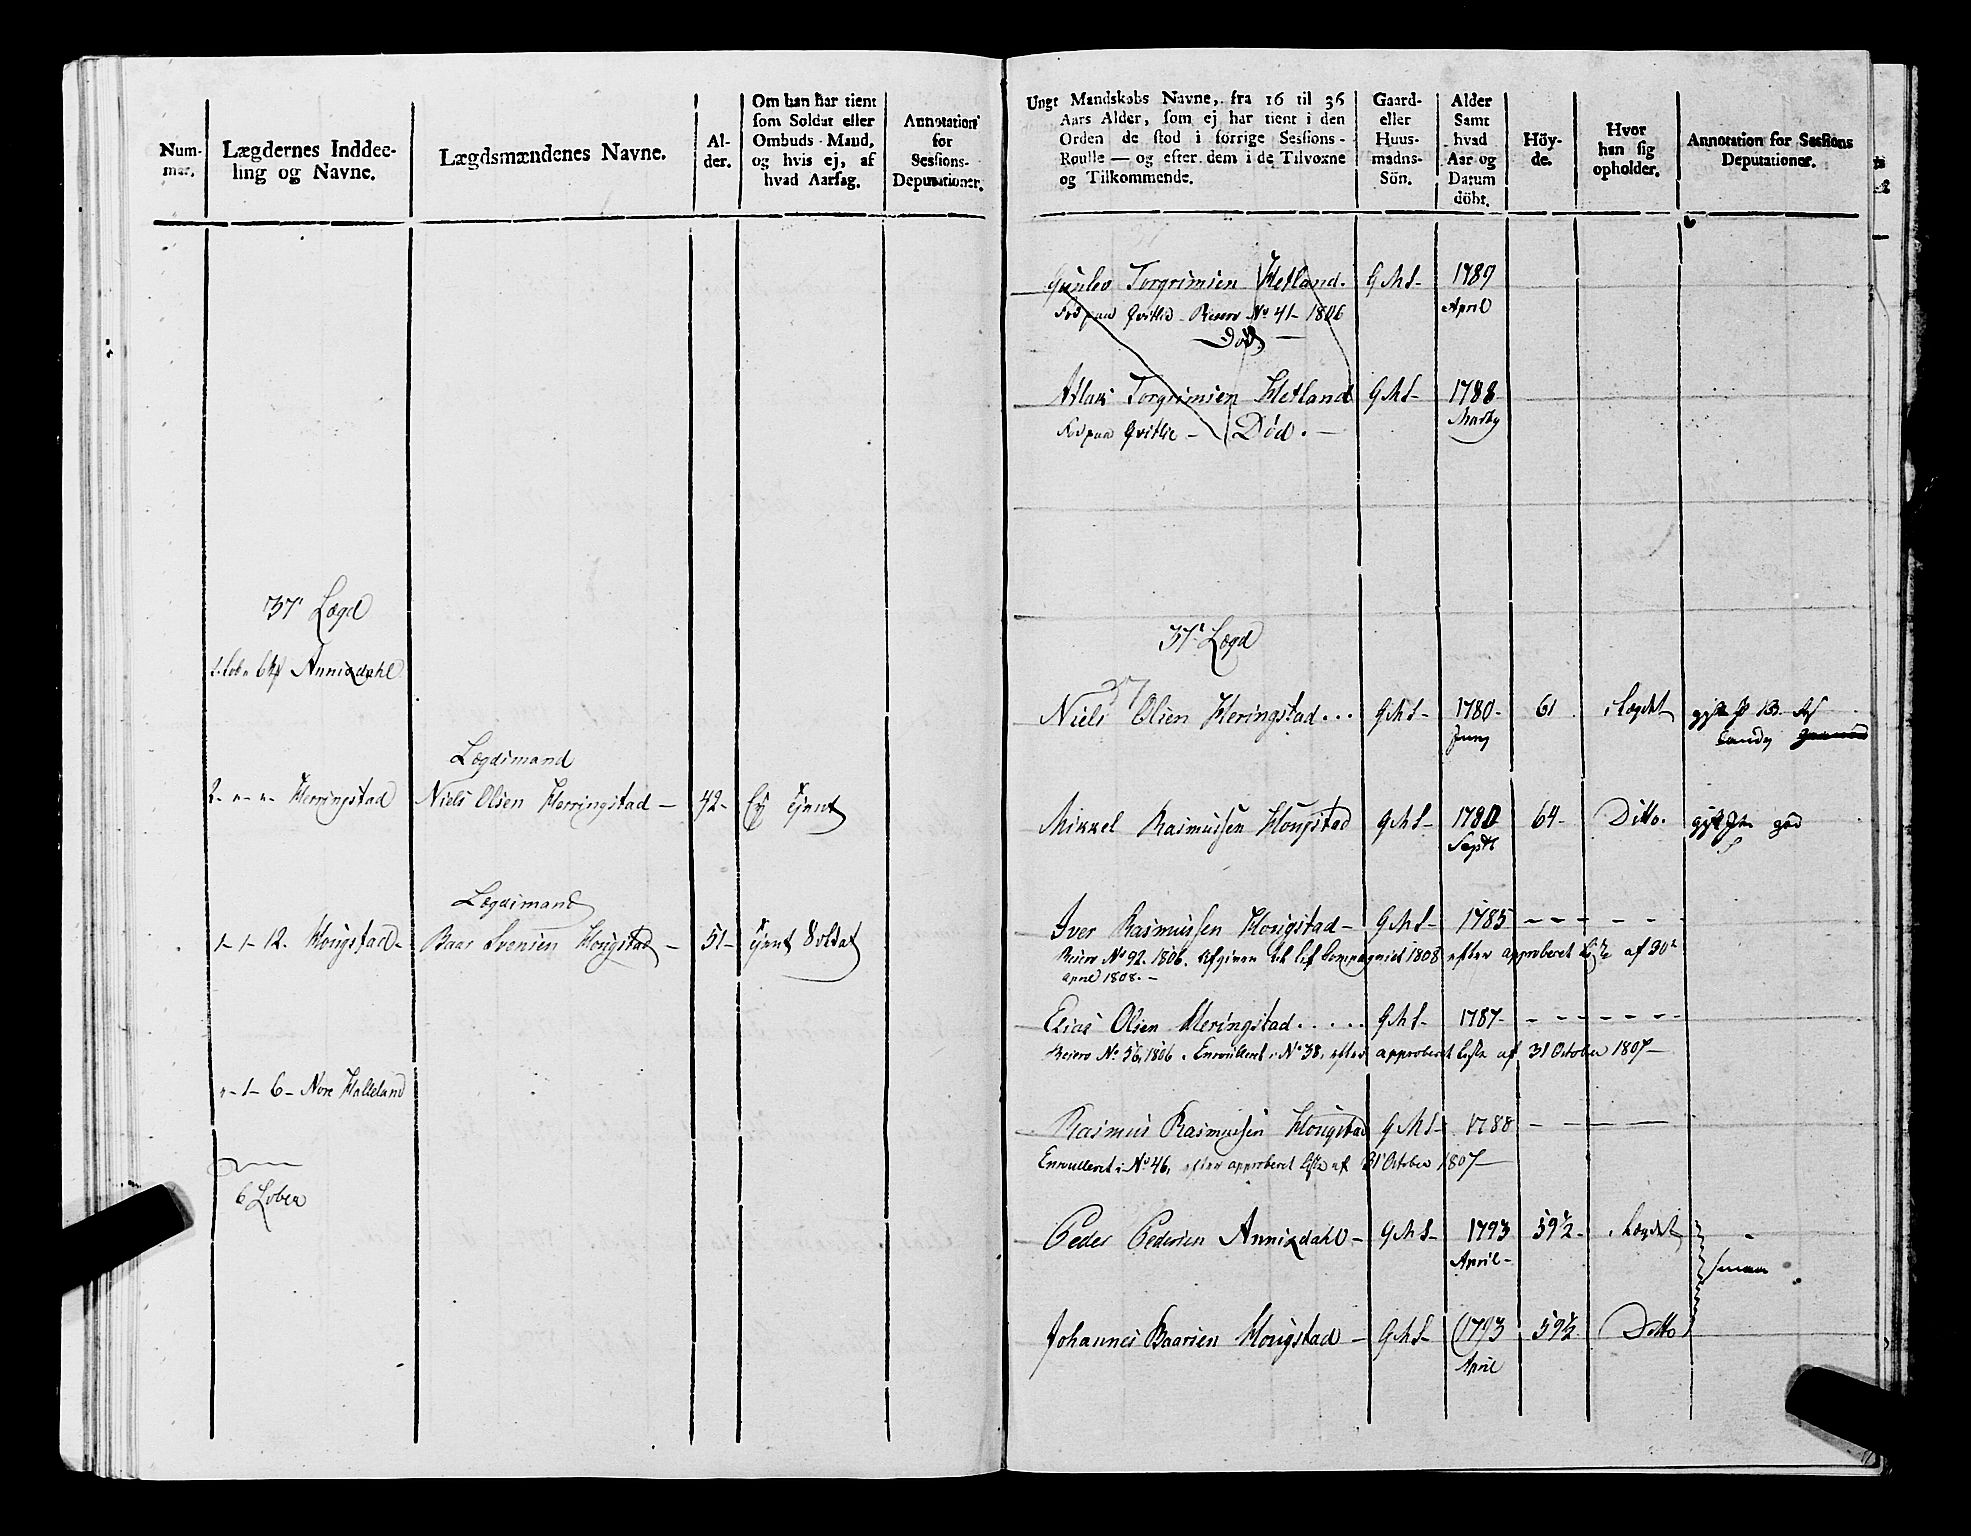 Num-
mer.
Lægdernes Inddee-
ling og Navne.
Lægdsmændenes Navne.
Al-
der.
Om han har tient
som Soldat eller
Ombuds-Mand,
og hvis ej, af
hvad Aarsag.
Annotation
for
Sessions-
Deputationer.
37' Lægd
Annisdahl
Lægdsmand
2- "- "- Herringstad Niels Olsen Herringstad - 42- Ej tjent
Lægdsmand
1- 1- 12. Hougstad- Baar Svensen Hougstad - 51- tjent Soldat
"- 1- 6- Nore Halleland
6 Løber
Ungt Mandskabs Navne, fra 16 til 36
Aars Alder, som ej har tient i den
Orden de stod i forrige Sessions-
Roulle — og efter dem i de Tilvoxne
og Tilkommende.
Gaard-
eller
Huus-
mands-
Sön.
Alder
Samt
hvad
Aar og
Datum
döbt.
Höy-
de.
Hvor
han sig
opholder.
Annotation for Sessions
Deputationer.
Gunlev Torgrimsen Hetland. G M S- 1789
Fød paa Qvitlie - Reserv No 41- 1806 April
Død. —
Aslak Torgrimsen Hetland G M S- 1788
Fød paa Qvitlie - Død. —
37' Lægd
37
Niels Olsen Heringstad... G M S- 1780- 61 i Lægdet
Juny
Mikkel Rasmussen Hougstad G M S- 1780 64- Ditto.
Septr
Iver Rasmussen Hougstad - G M S- 1785 - - - - - -
Reserv No 92. 1806. Afgiven til Lif Compagniet 1808 efter approberet Liste af 30te
April 1808. -
Elias Olsen Heringstad..... G M S- 1787- - - - - - -
Reserv No 56, 1806. Enroulleret i No 38, efter approberet Liste af 31 October 1807 -
Rasmus Rasmussen Hougstad G M S- 1788 - - - -
Enroulleret i No 46, efter approberet Liste af 31 October 1807 -
Peder Pedersen Annisdahl - G M S- 1793 59½- i Lægdet
April - smaa
Johannes Baarsen Hougstad - G M S- 1793 59½ Ditto
April